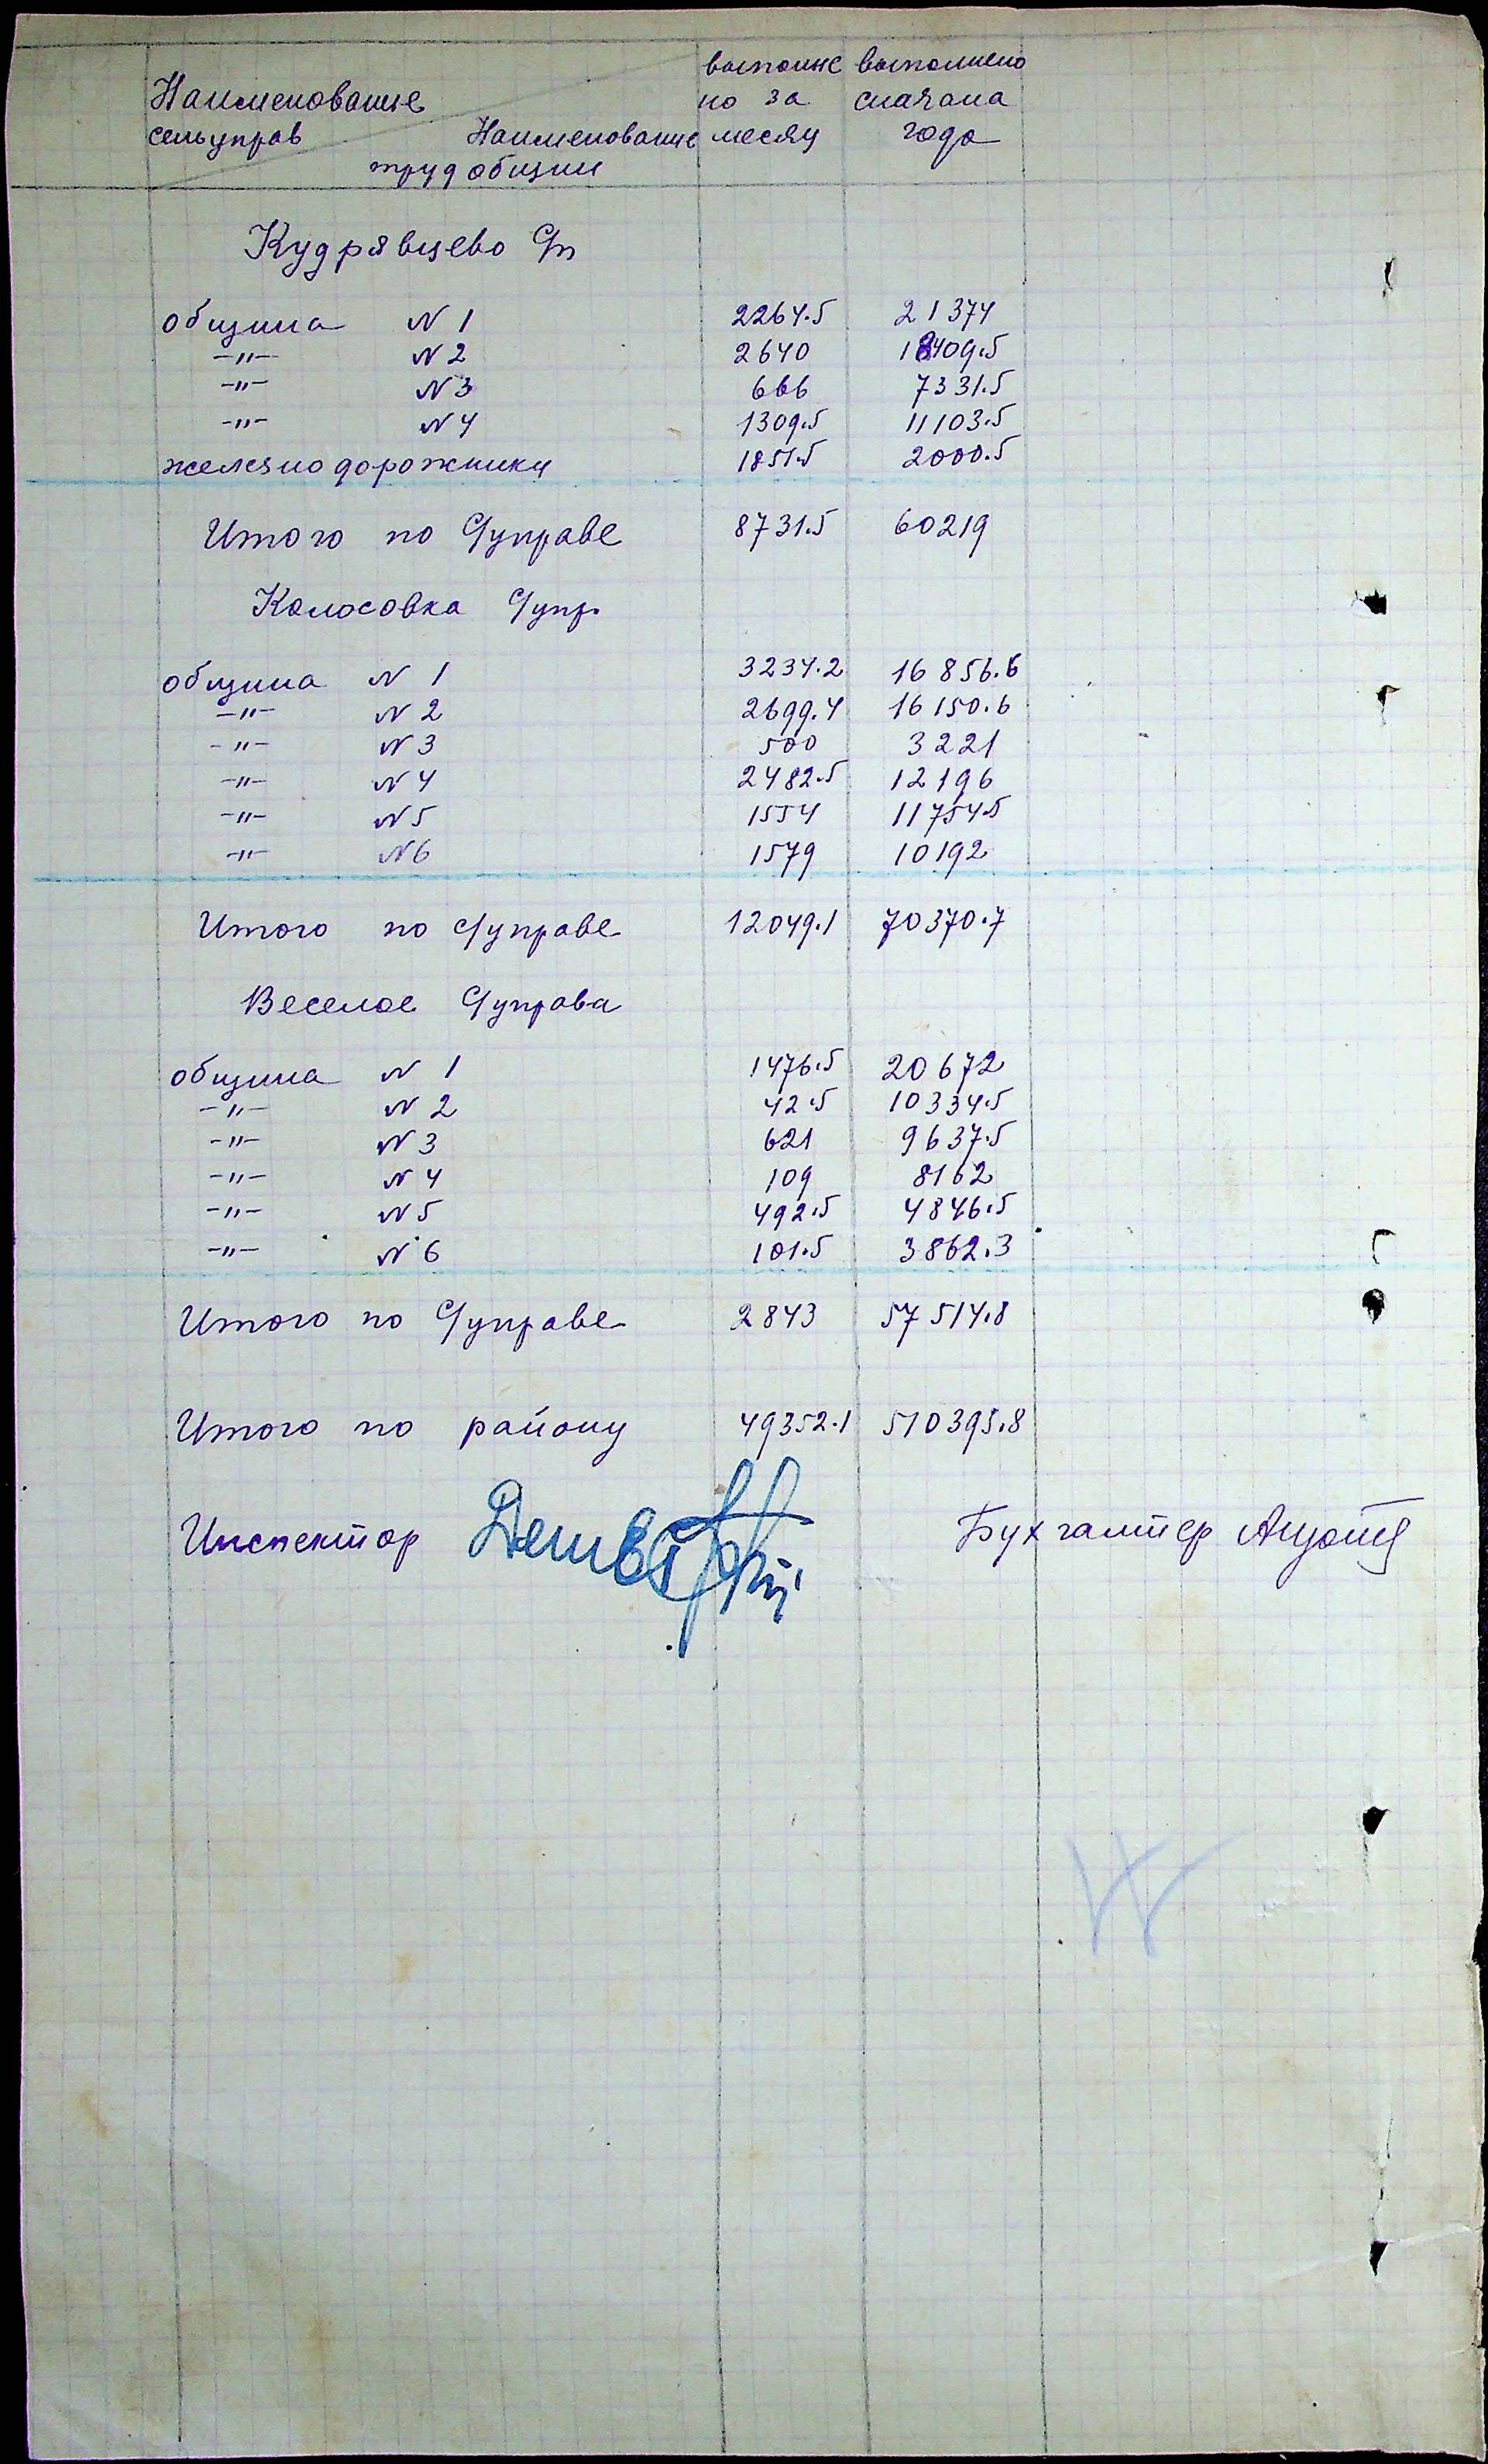 Наименование
сельуправ
Наименование
труд общин
выполне
но за
месяц
выполнено
сначала
года
Кудрявцево С/п
община N 1 2264.5 21374
-"- N 2 2640 18409.5
-"- N 3 666 7331.5
-"- N 4 1309.5 11103.5
железно дорожники 1851.5 2000.5
Итого по С/управе 8731.5 60219
Колосовка С/упр.
община N 1 3234.2 16856.6
-"- N 2 2699.4 16150.6
-"- N 3 500 3221
-"- N 4 2482.5 12196
-"- N 5 1554 11754.5
-"- N 6 1579 10192
Итого по С/управе 12049.1 70370.7
Веселое С/управа
община N 1 1476.5 20672
-"- N 2 42.5 10334.5
-"- N 3 621 9637.5
-"- N 4 109 8162
-"- N 5 492.5 4846.5
-"- N 6 101.5 3862.3
Итого по С/управе 2843 57514.8
Итого по району 49352.1 510395.8
Инспектор
Бухгалтер